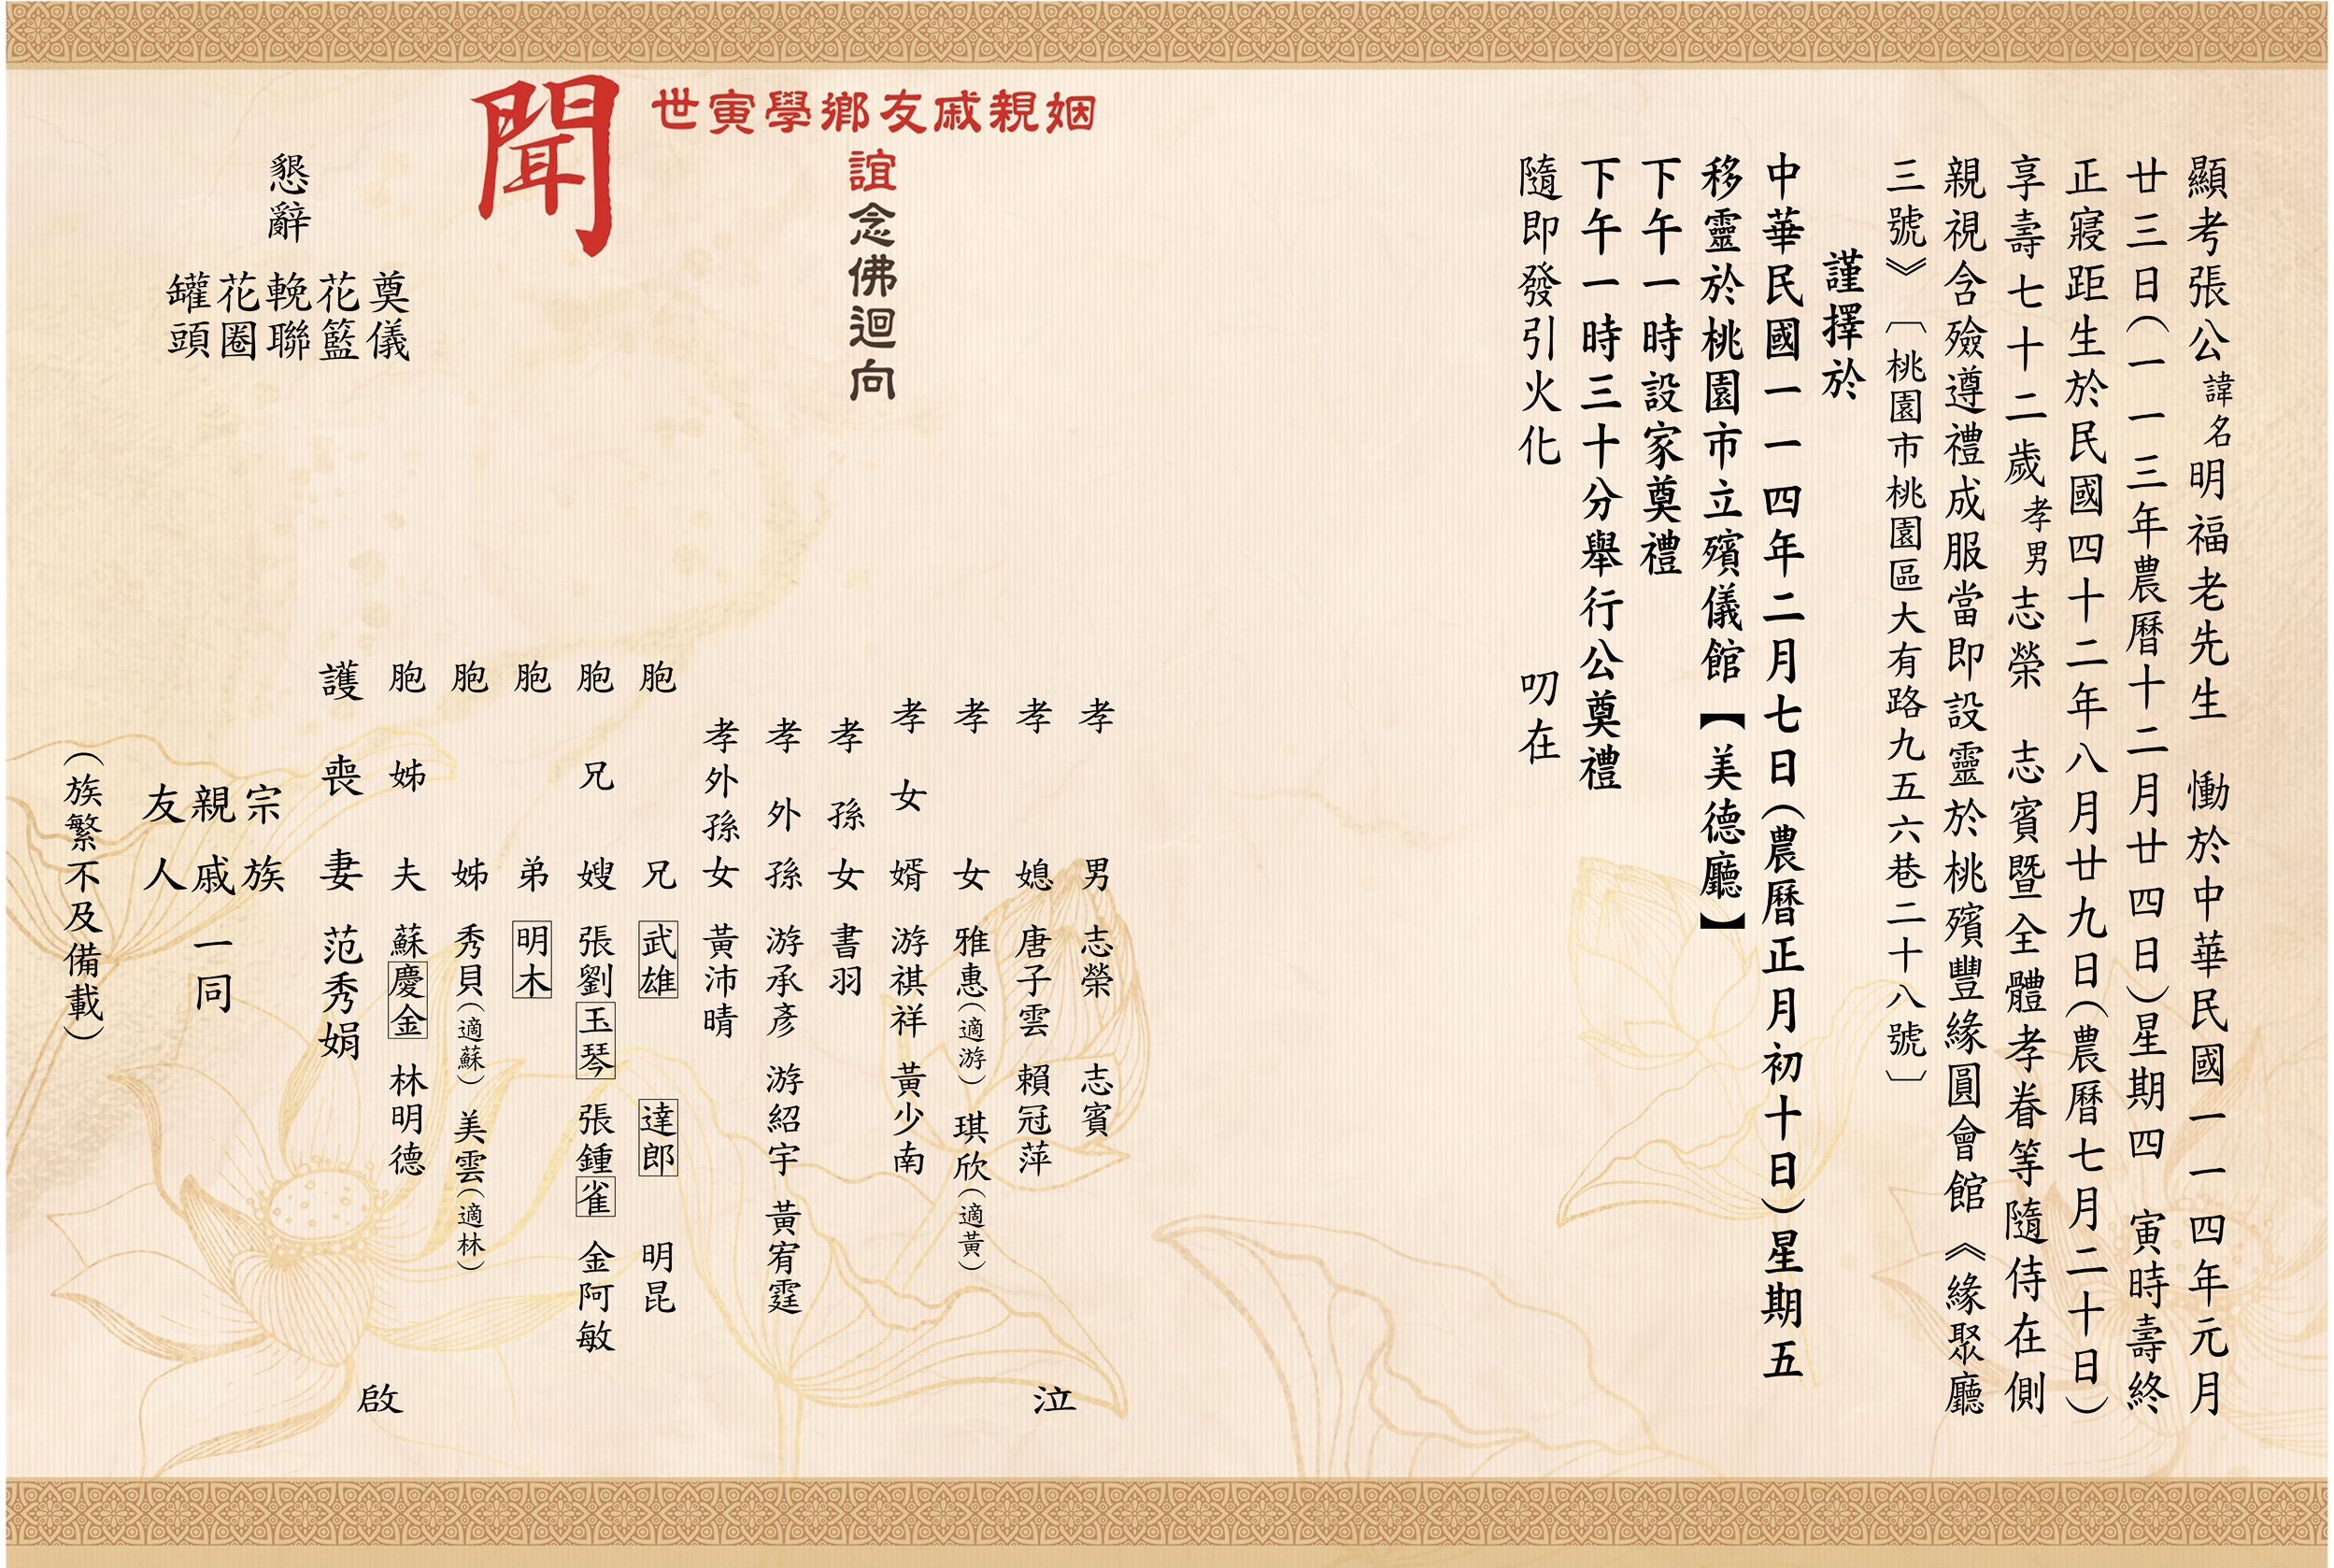 顯考張公諱名明福老先生　慟於中華民國一一四年元月
廿三日(一一三年農曆十二月廿四日)星期四　寅時壽終
正寢距生於民國四十二年八月廿九日(農曆七月二十日)
享壽七十二歲孝男志榮　志賓暨全體孝眷等隨侍在側
親視含殮遵禮成服當即設靈於桃殯豐緣圓會館《緣聚廳
三號》〔桃園市桃園區大有路九五六巷二十八號〕
謹擇於
中華民國一一四年二月七日(農曆正月初十日)星期五
移靈於桃園市立殯儀館【美德廳】
下午一時設家奠禮
下午一時三十分舉行公奠禮
隨即發引火化　叨在
姻親戚友鄉學寅世
誼念佛迴向
聞
孝男　志榮　志賓
孝媳　唐子雲　賴冠萍
孝女　雅惠(適游)　琪欣(適黃)
孝女婿　游祺祥　黃少南
孝孫女　書羽
孝外孫　游承彥　游紹宇　黃宥霆
孝外孫女　黃沛晴
胞兄　武雄　達郎　明昆
胞兄嫂　張劉玉琴　張鍾雀　金阿敏
胞弟　明木
胞姊　秀貝(適蘇)　美雲(適林)
胞姊夫　蘇慶金　林明德
護喪妻　范秀娟
泣
啟
宗族
親戚一同
友人
(族繁不及備載)
懇辭
奠儀
花籃
輓聯
花圈
罐頭